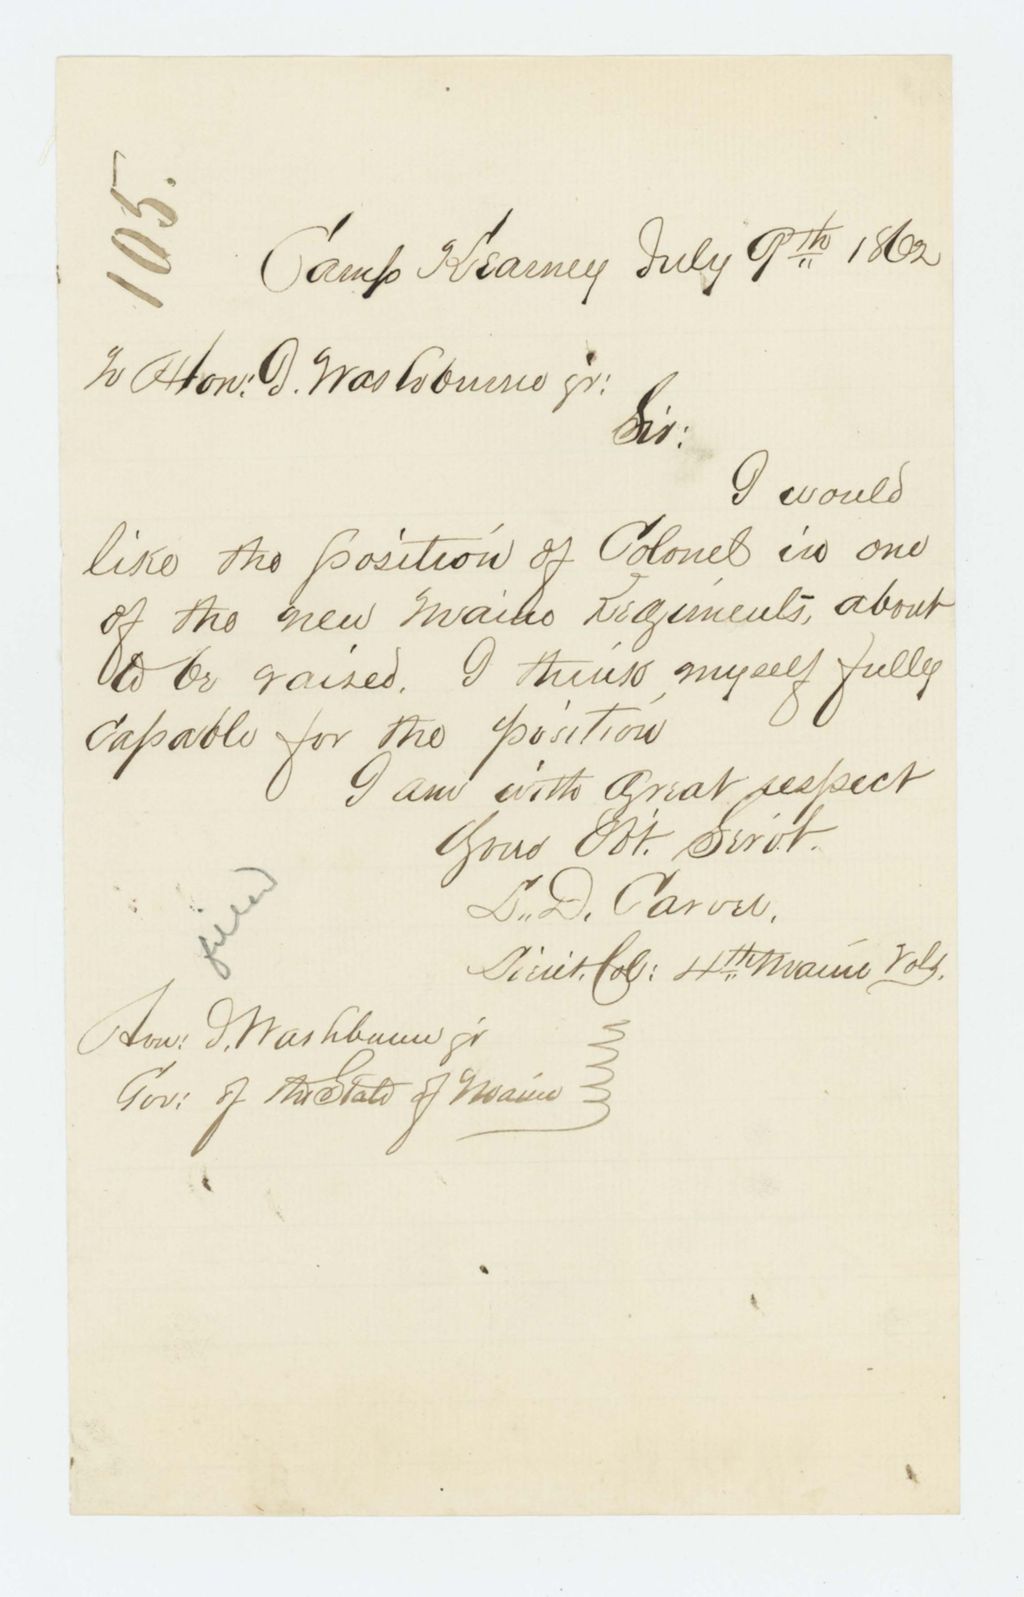 105.
Camp Kearney July 9th 1862
To Hon: I. Washburne jr:
Sir:
I would
like the position of Colonel in one
of the new Maine Regiments, about
to be raised. I think myself fully
capable for the position
I am with Great respect
Your Obt. Servt.
L. D. Carver.
Lieut. Col: 4th Maine Vols.
filed
Hon: I. Washburne jr
Gov: of the State of Maine